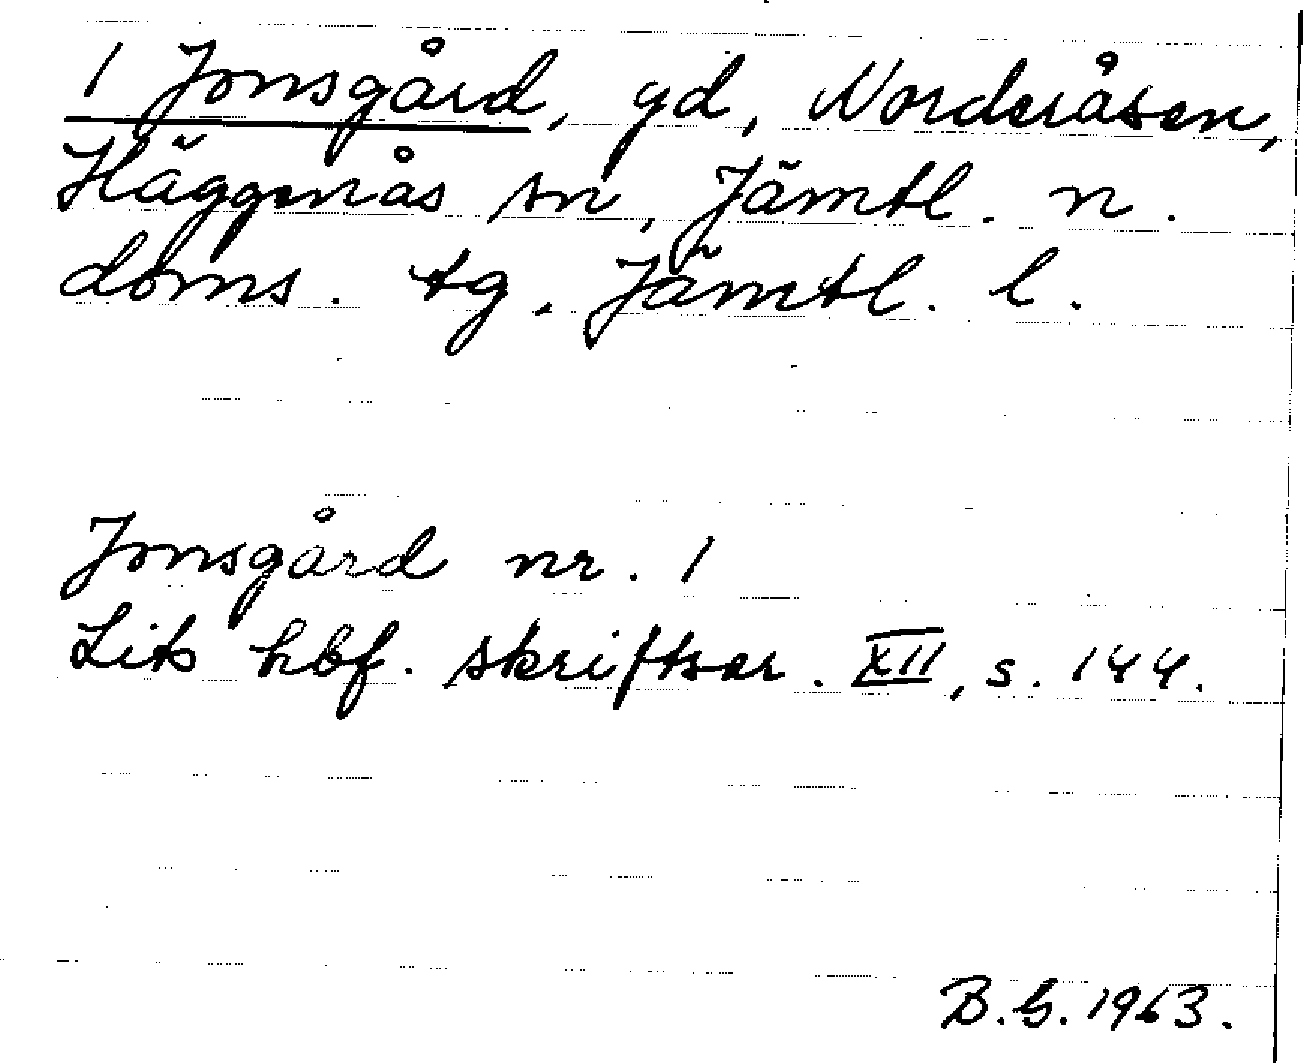 1 Jonsgård, gd, Norderåsen,
Häggenås sn, Jämtl. n.
doms. tg. Jämtl. l.
Jonsgård nr. 1
Lits hbf. skriftser. XII, s. 144.
B.G. 1963.